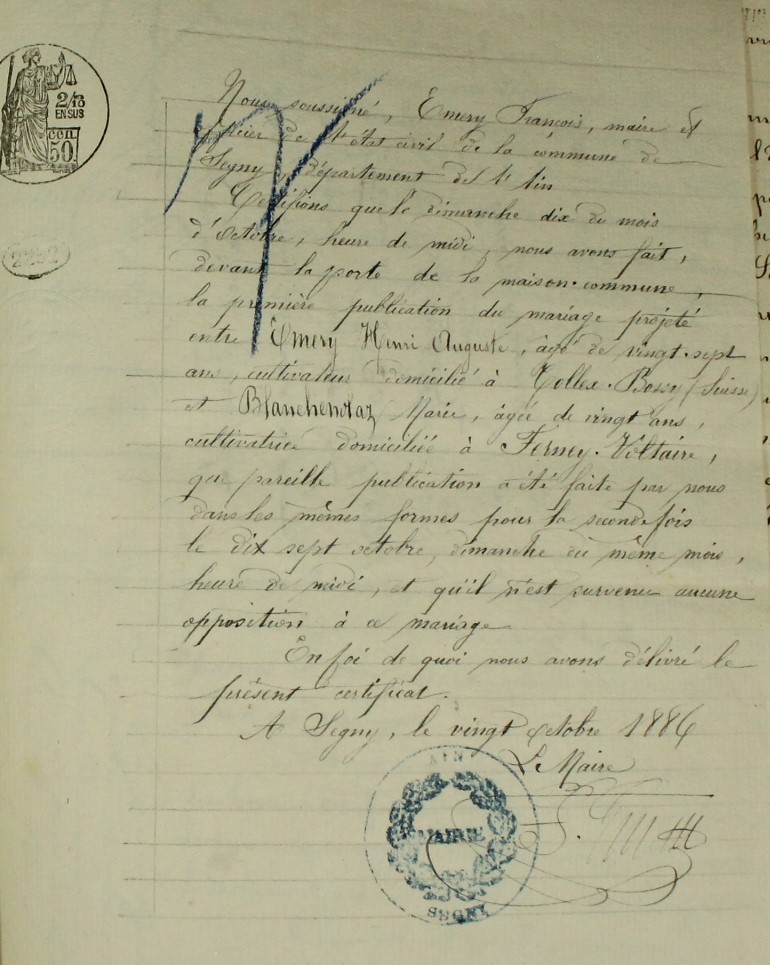 2/10
EN SUS
CEN.
50.
2252
Nous soussigné, Emery François, maire et
officier de l'état civil de la commune de
Segny, département de l'Ain
Certifions que le dimanche dix du mois
d'octobre, heure de midi, nous avons fait,
devant la porte de la maison commune,
la première publication du mariage projeté
entre Emery Henri Auguste, âgé de vingt-sept
ans, cultivateur domicilié à Collex-Bossy (Suisse)
et Blanchenolaz Marie, âgée de vingt ans,
cultivatrice domiciliée à Ferney-Voltaire,
que pareille publication a été faite par nous
dans les mêmes formes pour la seconde fois
le dix sept octobre, dimanche du même mois,
heure de midi, et qu'il n'est survenu aucune
opposition à ce mariage
En foi de quoi nous avons délivré le
présent certificat.
A Segny, le vingt octobre 1886
Le Maire
AIN
MAIRIE
SEGNY